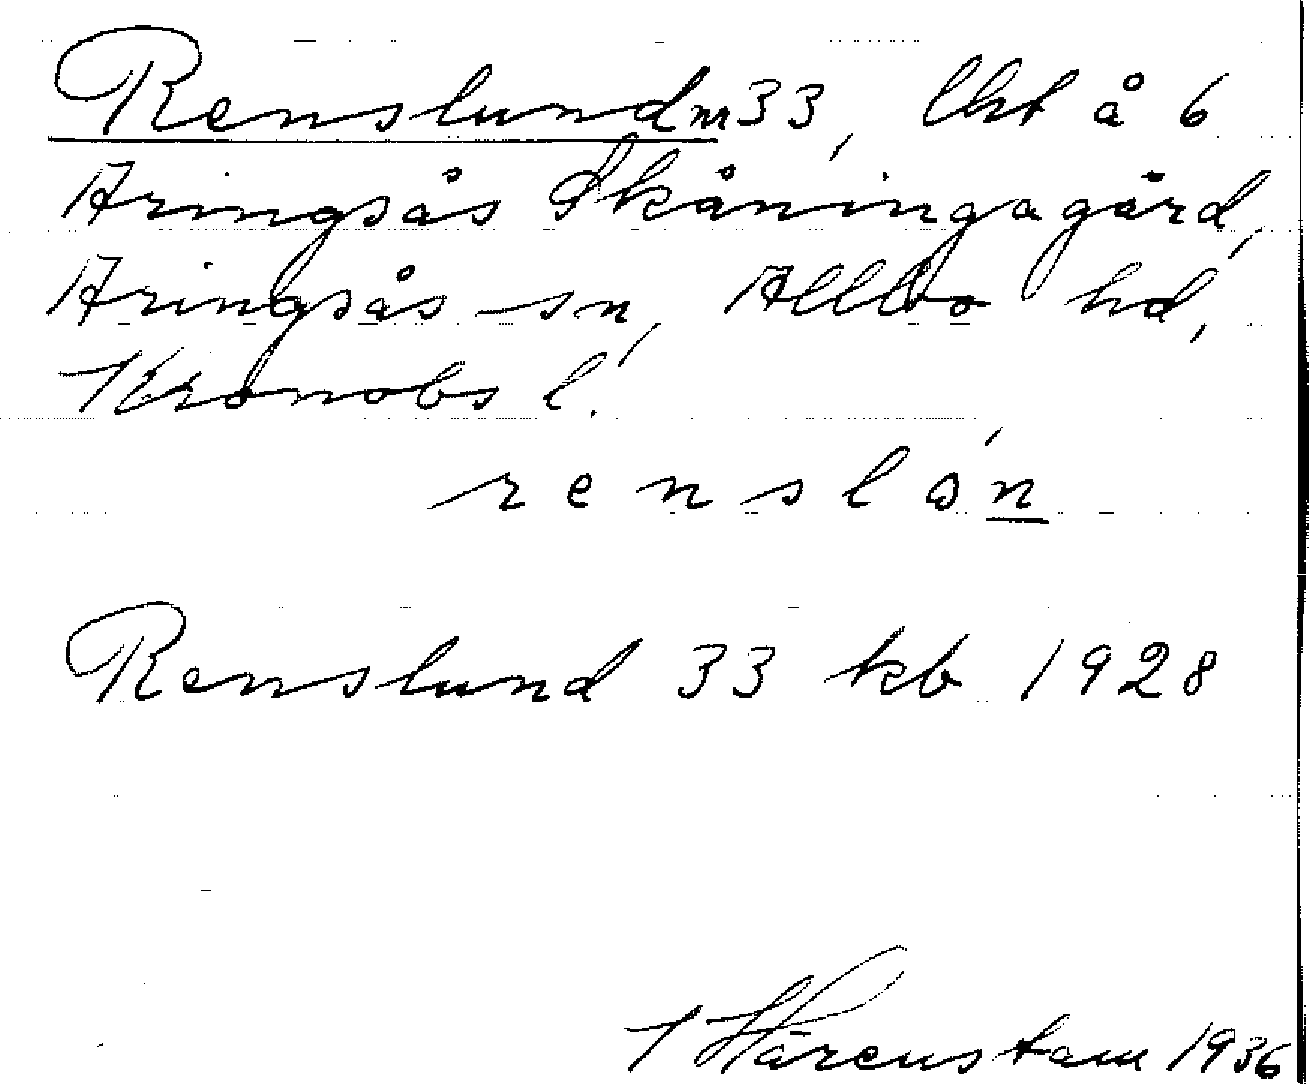 Renslund nr 33, lht å 6
Aringsås Skåningagård,
Aringsås sn, Allbo hd,
Kronobs l.
renslón
Renslund 33 kb 1928
Härenstam 1936